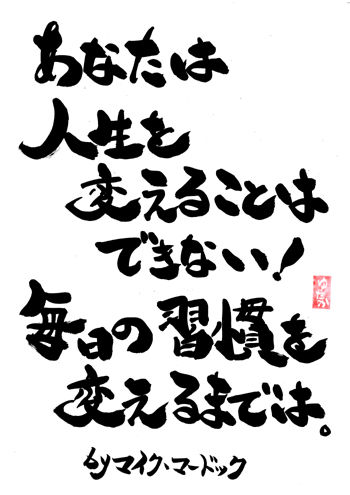 あなたは
人生を
変えることは
できない!
毎日の習慣を
変えるまでは。
byマイク・マードック